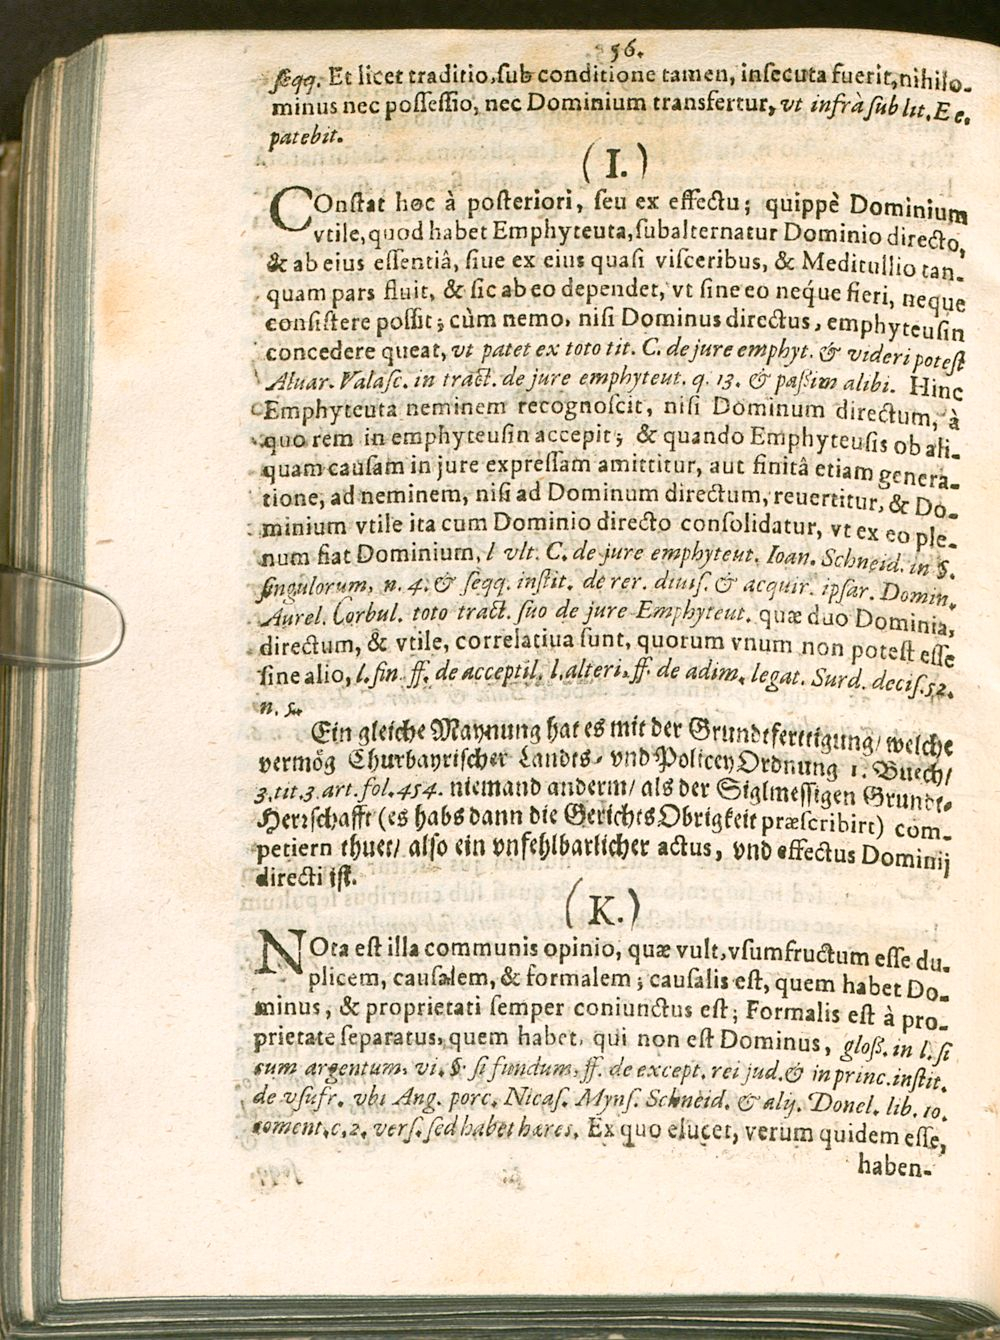 56.
ſeqq. Et licet traditio, ſub conditione tamen, inſecuta fuerit, nihilo-
minus nec poſſeſſio, nec Dominium transfertur, vt infrà ſub lit. E e.
patebit.
(I.)
COnſtat hoc à poſteriori, ſeu ex effectu; quippè Dominium
vtile, quod habet Emphyteuta, ſubalternatur Dominio directo,
& ab eius eſſentiâ, ſiue ex eius quaſi viſceribus, & Meditullio tan-
quam pars fluit, & ſic ab eo dependet, vt ſine eo neq́ue fieri, neque
conſiſtere poſſit; cùm nemo, niſi Dominus directus, emphyteuſin
concedere queat, vt patet ex toto tit. C. de jure emphyt. & videri poteſt
Aluar. Valaſc. in tract. de jure emphyteut. q. 13. & paßim alibi. Hinc
Emphyteuta neminem recognoſcit, niſi Dominum directum, à
quo rem in emphyteuſin accepit; & quando Emphyteuſis ob ali-
quam cauſam in jure expreſſam amittitur, aut finitâ etiam genera-
tione, ad neminem, niſi ad Dominum directum, reuertitur, & Do-
minium vtile ita cum Dominio directo conſolidatur, vt ex eo ple-
num fiat Dominium, l vlt. C. de jure emphyteut. Ioan. Schneid. in §.
ſingulorum, n. 4. & ſeqq. inſtit. de rer. diuiſ. & acquir. ipſar. Domin.
Aurel. Corbul. toto tract. ſuo de jure Emphyteut. quæ duo Dominia,
directum, & vtile, correlatiua ſunt, quorum vnum non poteſt eſſe
ſine alio, l. fin. ff. de acceptil. l. alteri. ff. de adim. legat. Surd. deciſ. 52.
n. 5.
Ein gleiche Maynung hat es mit der Grundtfertigung/ welche
vermög Churbayriſcher Landts- vnd Policey Ordnung 1. Buech/
3. tit. 3. art. fol. 454. niemand anderm/ als der Siglmeſſigen Grundt-
Herrſchafft (es habs dann die Gerichts Obrigkeit præſcribirt) com-
petiern thuet/ alſo ein vnfehlbarlicher actus, vnd effectus Dominij
directi iſt.
(K.)
NOta eſt illa communis opinio, quæ vult, vſumfructum eſſe du-
plicem, cauſalem, & formalem; cauſalis eſt, quem habet Do-
minus, & proprietati ſemper coniunctus eſt; Formalis eſt à pro-
prietate ſeparatus, quem habet, qui non eſt Dominus, gloß. in l. ſi
cum argentum, vi. §. ſi fundum, ff. de except. rei jud. & in princ. inſtit.
de vſufr. vbi Ang. porc. Nicaſ. Mynſ. Schneid. & alij. Donel. lib. 10.
coment. c. 2. verſ. ſed habet hæres. Ex quo elucet, verum quidem eſſe,
haben-